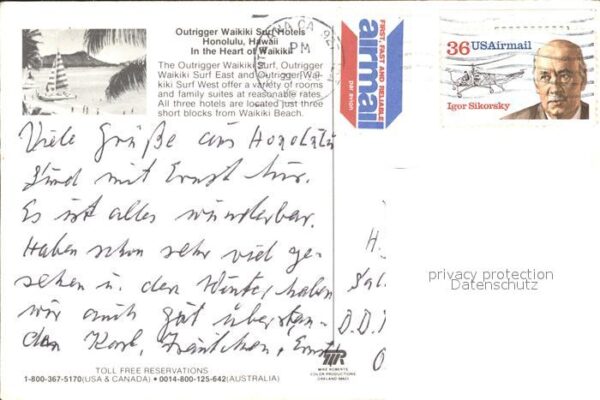 Outrigger Waikiki Surf Hotels
Honolulu, Hawaii
In the Heart of Waikiki
The Outrigger Waikiki Surf, Outrigger
Waikiki Surf East and Outrigger Wai-
kiki Surf West offer a variety of rooms
and family suites at reasonable rates.
All three hotels are located just three
short blocks from Waikiki Beach.
PM
FIRST, FAST AND RELIABLE
airmail
par avion
36 USAirmail
Igor Sikorsky
Viele Grüße aus Honolulu
Sind mit Ernst hier.
Es ist alles wunderbar.
Haben schon sehr viel ge-
sehen u. den Winter haben
wir auch gut überstan-
den Karl, Ernst
H.
D.D.
privacy protection
Datenschutz
MIKE ROBERTS
COLOR PRODUCTIONS
OAKLAND
TOLL FREE RESERVATIONS
1-800-367-5170 (USA & CANADA) • 0014-800-125-642 (AUSTRALIA)